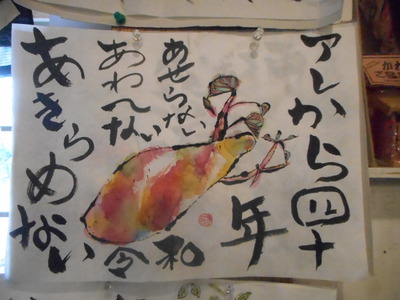 アレから四十
年
あせらない
あわてない
あきらめない
令和